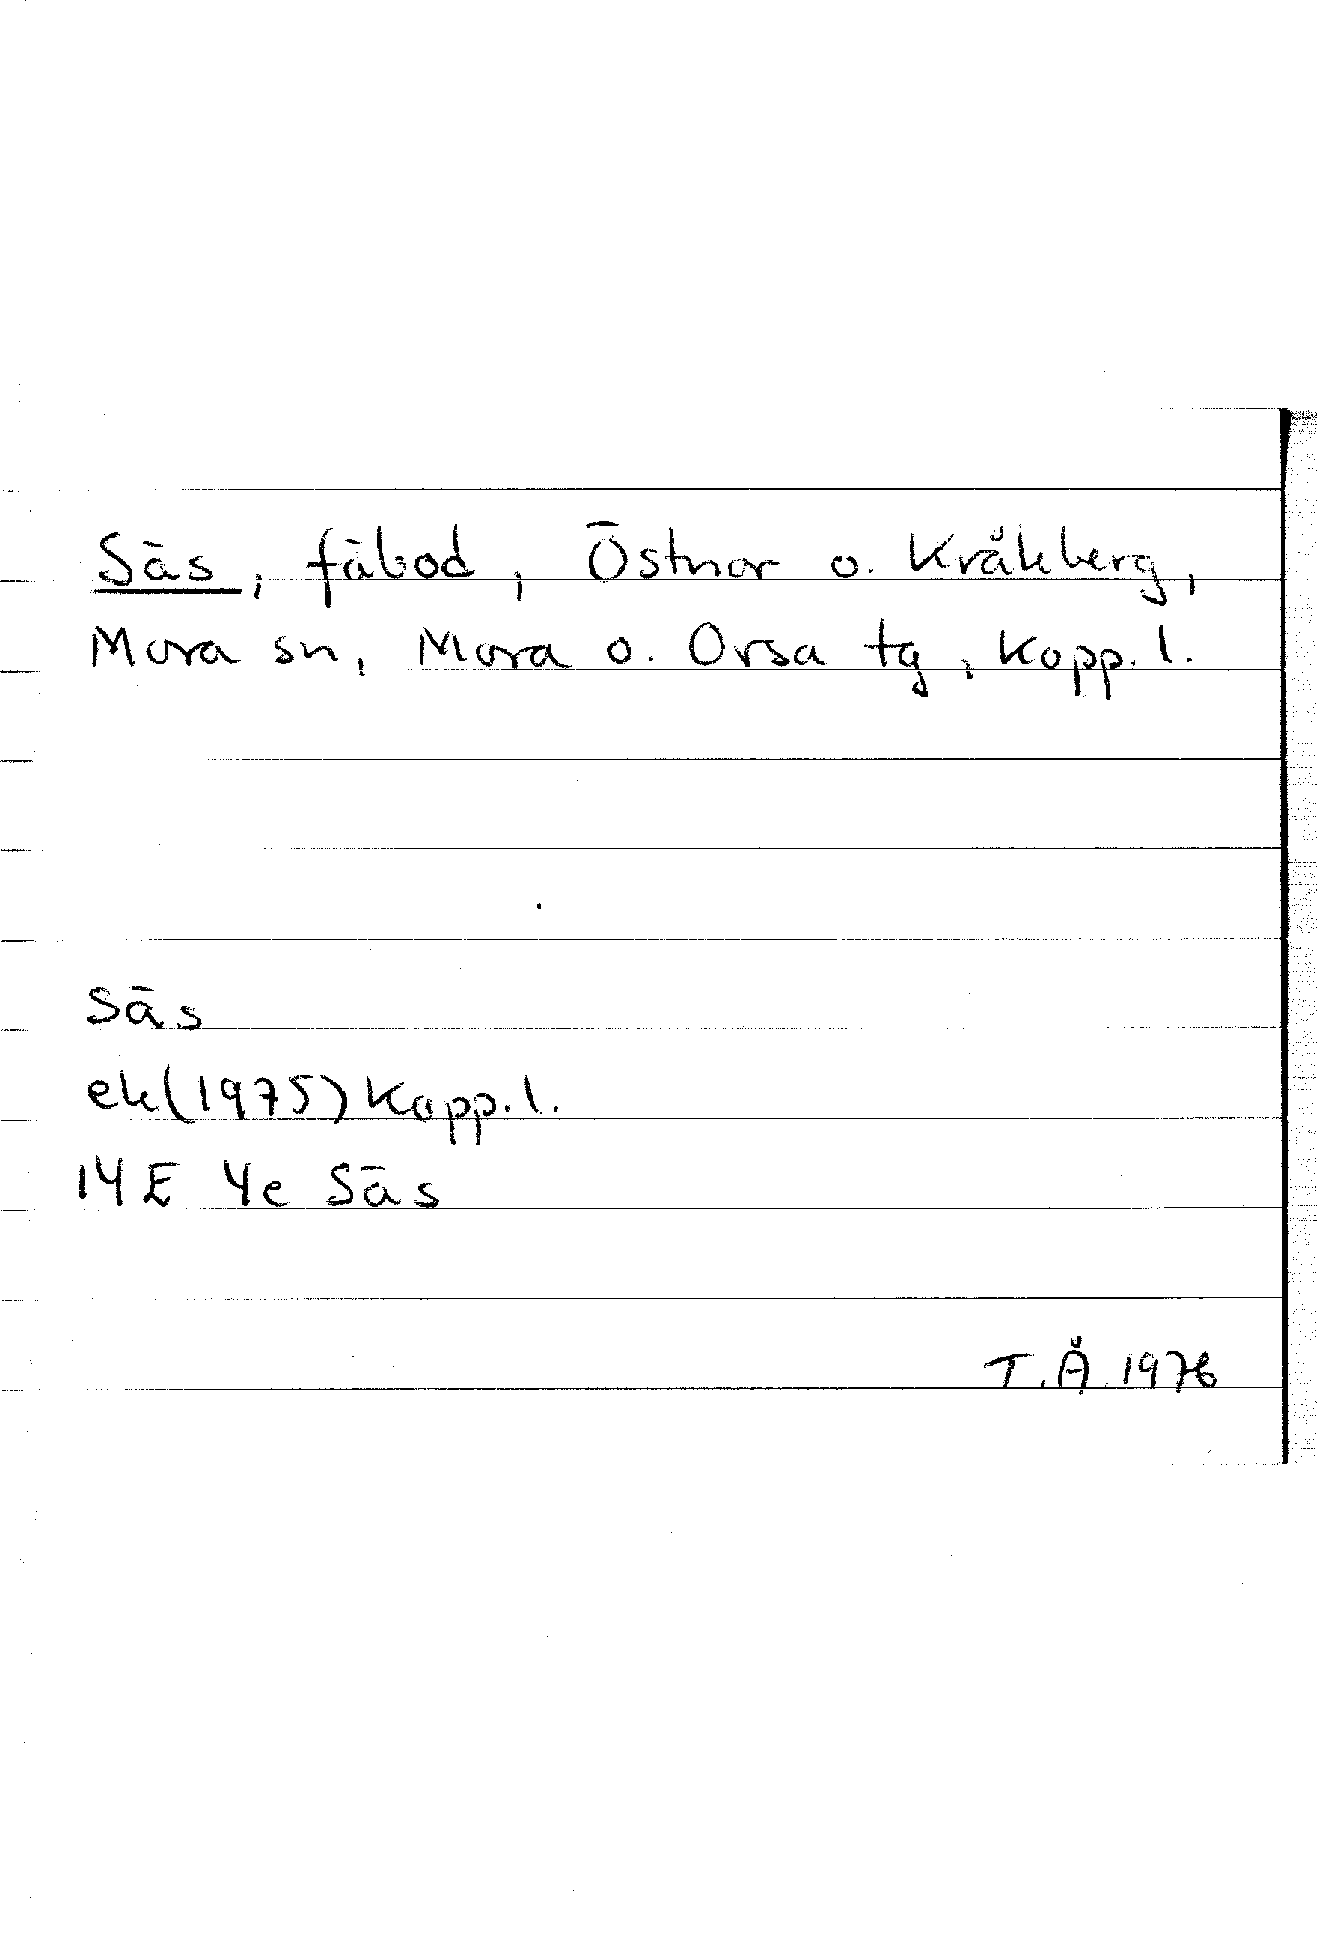 Säs, fäbod, Östnor o. Kråkberg,
Mora sn, Mora o. Orsa tg, Kopp. l.
Säs
ek(1975) Kopp. l.
14E 4e Säs
T.Å. 1976